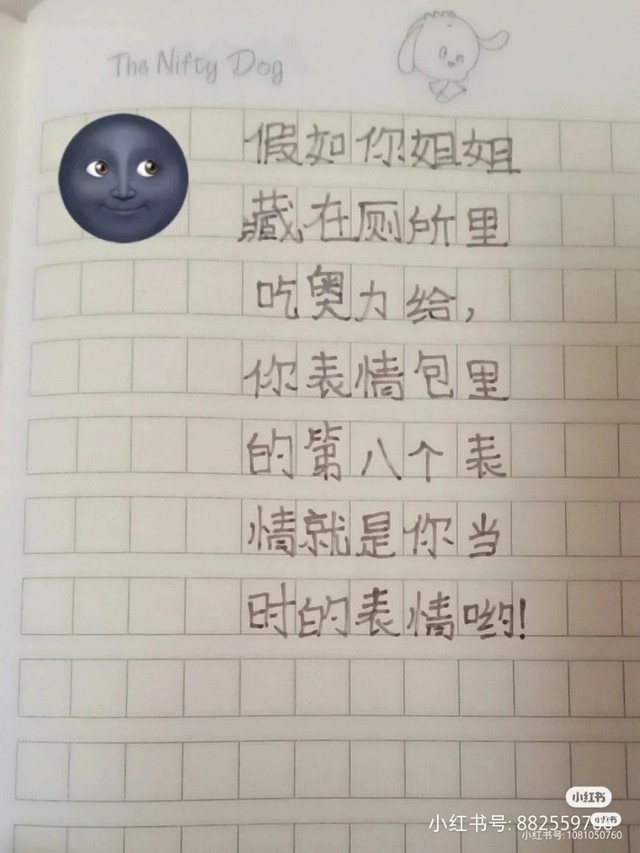 The Nifty Dog
假如你姐姐
藏在厕所里
吃奥力给，
你表情包里
的第八个表
情就是你当
时的表情哟!
小红书
小红书号: 8825597
小红书
小红书号: 1081050760